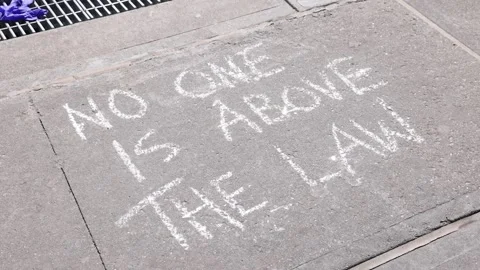 NO ONE
IS ABOVE
THE LAW